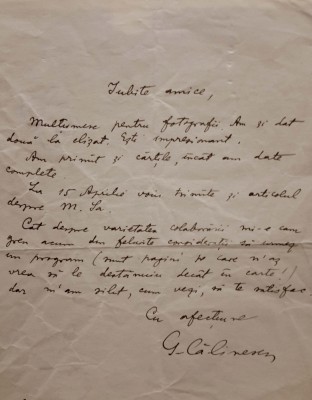 Iubite amice,
Mulțumesc pentru fotografii. Am și dat
două la clișat. Ești impresionant.
Am primit și cărțile, încât am date
complete.
La 15 Aprilie voiu trimite și articolul
despre M. Sa.
Cât despre varietatea colaborării mi-e cam
greu acum din felurite considerații să urmez
un program (sunt pagini pe care n'aș
vrea să le destăinuiu decât în carte!)
dar m'am silit, cum vezi, să te satisfac
Cu afecțiune
G. Călinescu